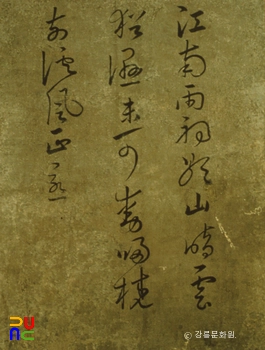 江南雨初歇山暗雲
猶濕未可動歸橈
前溪風正急
© 강릉문화원